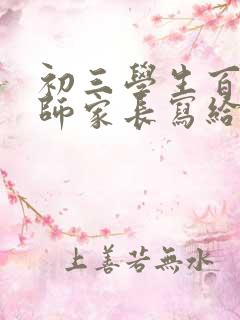 初三學生百
師家長寫給
上善若無水